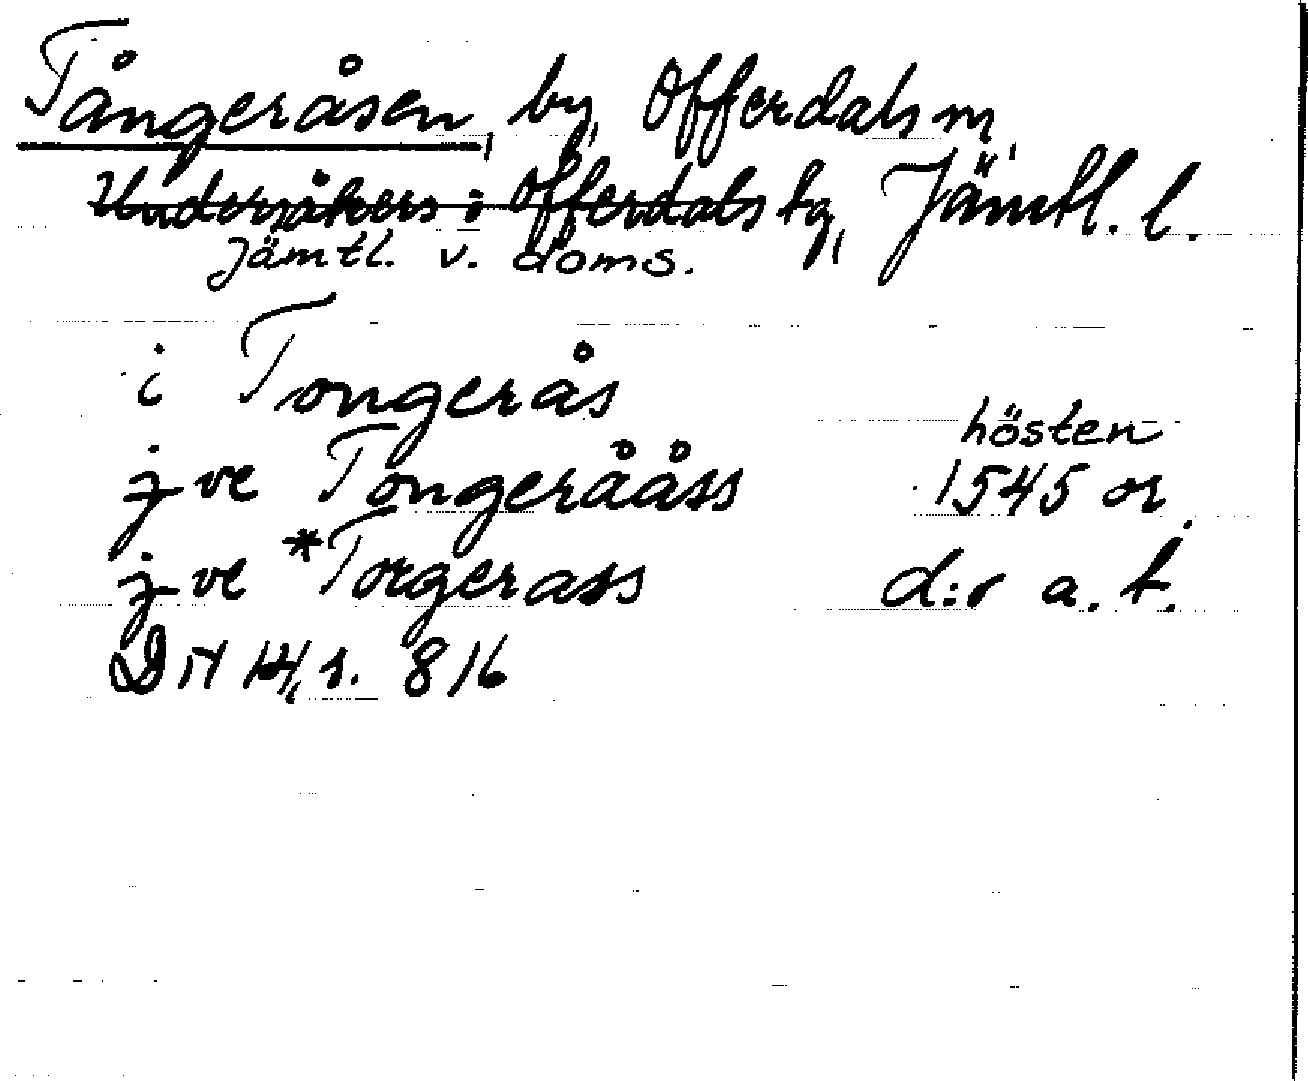 Tångeråsen, by, Offerdals sn,
Undersåkers o Offerdals tg, Jämtl. l.
Jämtl. v. doms.
i Tongerås
hösten
j ve Tongerååss 1545 or.
j ve *Torgerass d:r a. t.
816